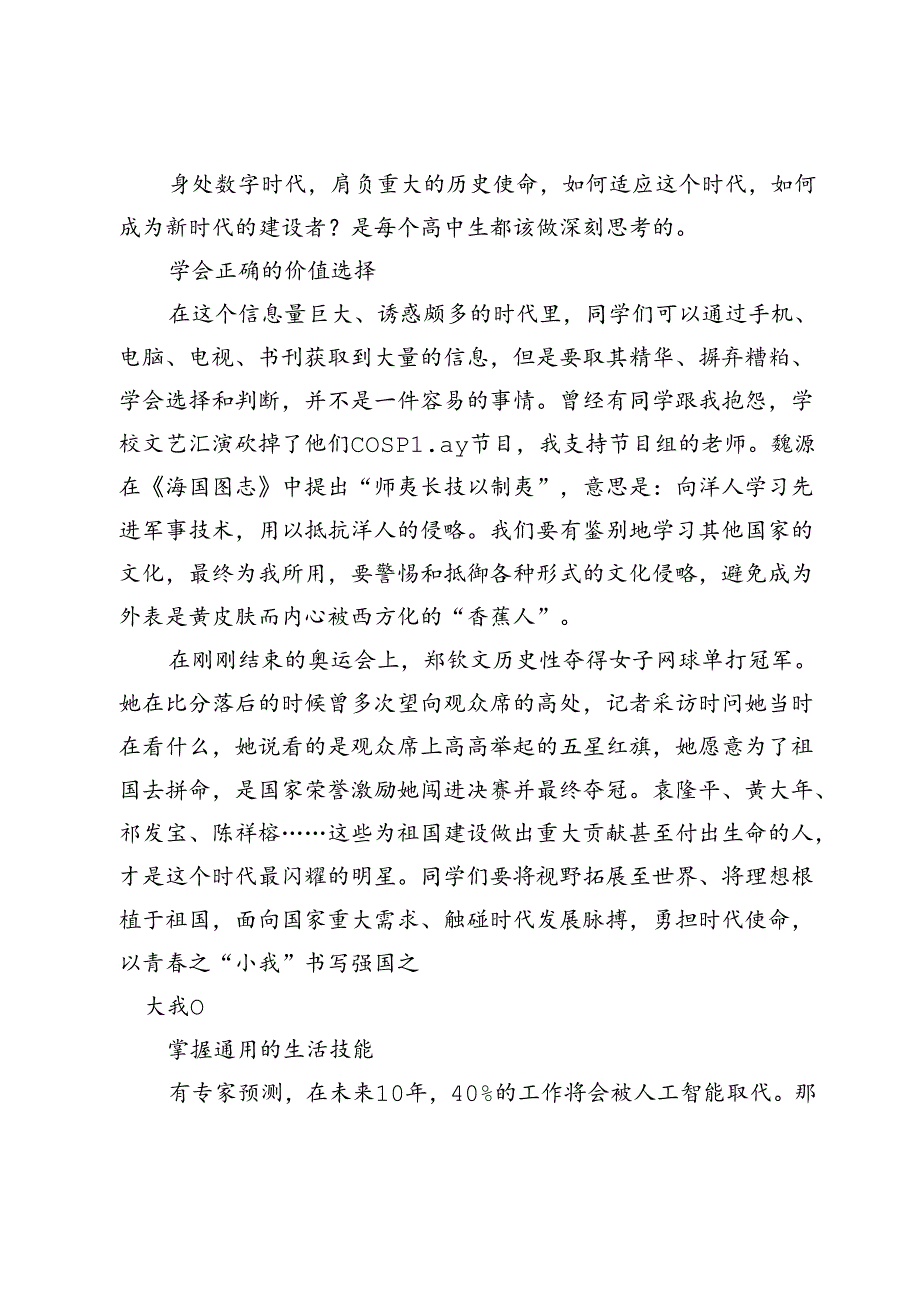 身处数字时代，肩负重大的历史使命，如何适应这个时代，如何
成为新时代的建设者？是每个高中生都该做深刻思考的。
学会正确的价值选择
在这个信息量巨大、诱惑颇多的时代里，同学们可以通过手机、
电脑、电视、书刊获取到大量的信息，但是要取其精华、摒弃糟粕、
学会选择和判断，并不是一件容易的事情。曾经有同学跟我抱怨，学
校文艺汇演砍掉了他们COSP1.ay节目，我支持节目组的老师。魏源
在《海国图志》中提出“师夷长技以制夷”，意思是：向洋人学习先
进军事技术，用以抵抗洋人的侵略。我们要有鉴别地学习其他国家的
文化，最终为我所用，要警惕和抵御各种形式的文化侵略，避免成为
外表是黄皮肤而内心被西方化的“香蕉人”。
在刚刚结束的奥运会上，郑钦文历史性夺得女子网球单打冠军。
她在比分落后的时候曾多次望向观众席的高处，记者采访时问她当时
在看什么，她说看的是观众席上高高举起的五星红旗，她愿意为了祖
国去拼命，是国家荣誉激励她闯进决赛并最终夺冠。袁隆平、黄大年、
祁发宝、陈祥榕……这些为祖国建设做出重大贡献甚至付出生命的人，
才是这个时代最闪耀的明星。同学们要将视野拓展至世界、将理想根
植于祖国，面向国家重大需求、触碰时代发展脉搏，勇担时代使命，
以青春之“小我”书写强国之
大我O
掌握通用的生活技能
有专家预测，在未来10年，40%的工作将会被人工智能取代。那